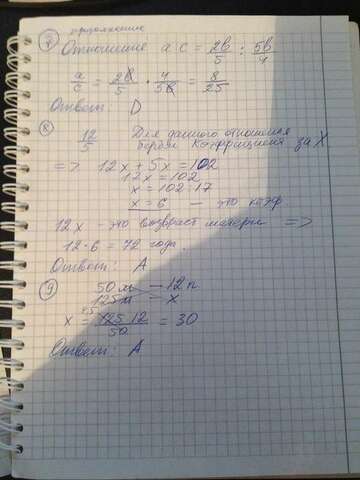 продолжение
⑦ Отношение a c = 2b/5 : 5b/4
a/c = 2b/5 · 4/5b = 8/25
Ответ: D
⑧ 12/5 Для данного отношения
берём коэффициент за X
=> 12x + 5x = 102
12x = 102
x = 102:17
x = 6 — это коэф
12x - это возраст матери =>
12·6 = 72 года.
Ответ: A
⑨ 50 м — 12 п
125 м — x
x = 125·12/50 = 30
Ответ: A